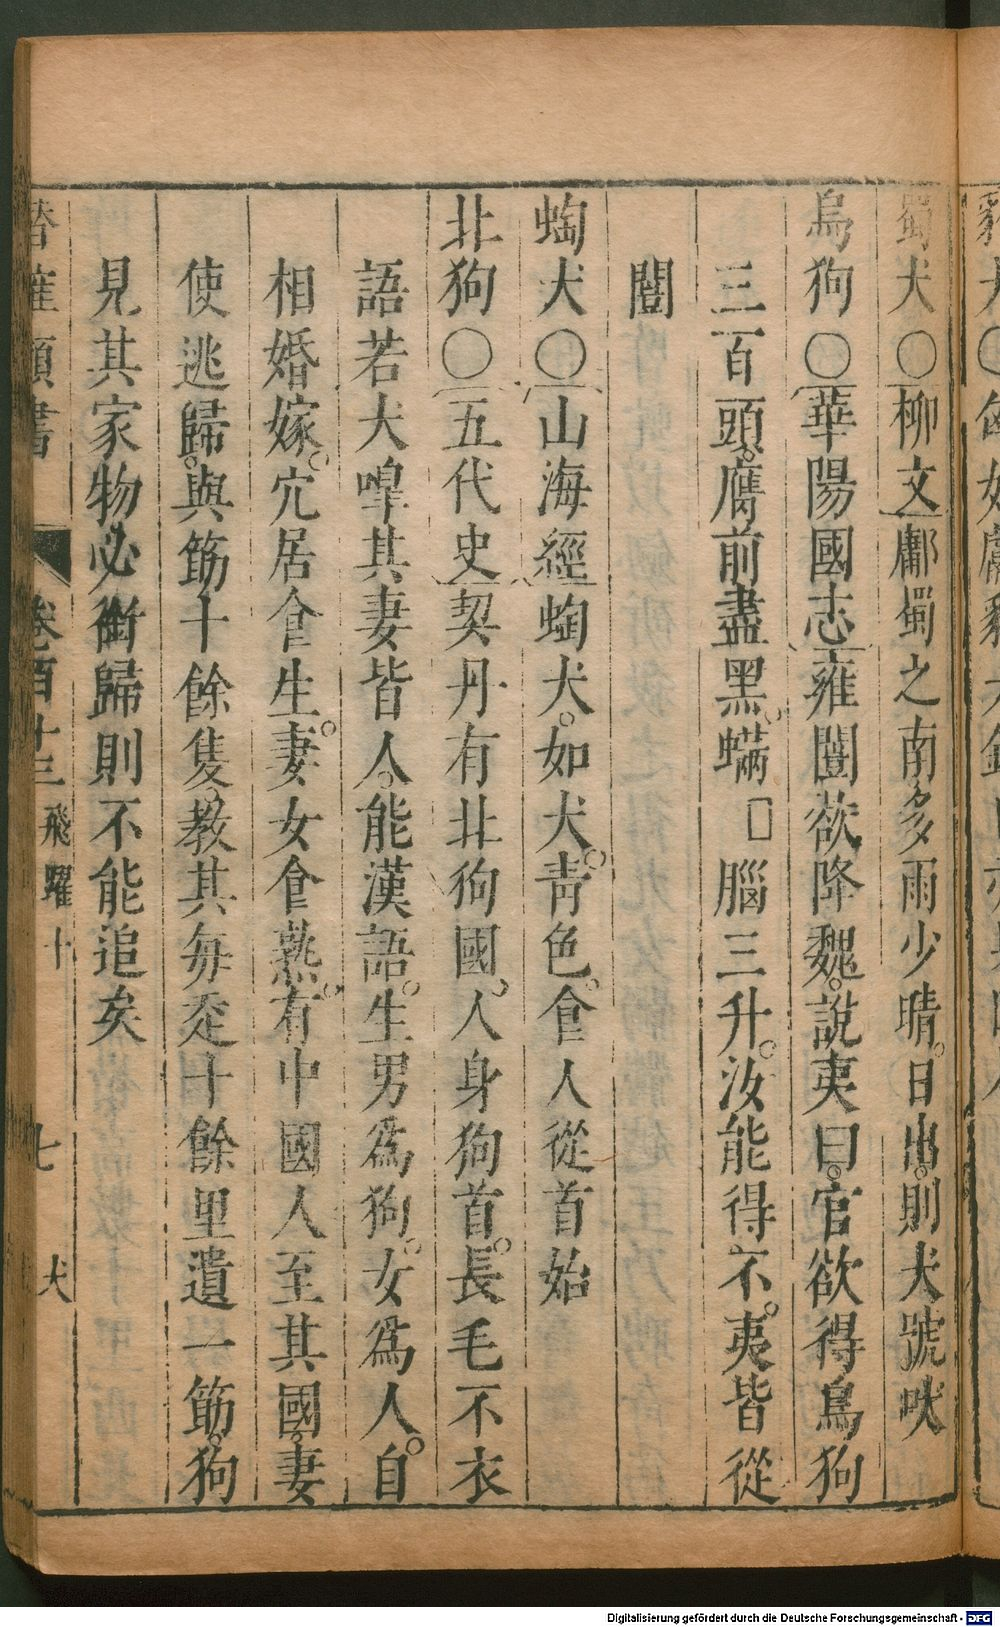 蜀犬○柳文鄘蜀之南多雨少晴日出則犬號吠
烏狗○華陽國志雍闓欲降魏說夷曰官欲得烏狗
三百頭膺前盡黑螨 腦三升汝能得不夷皆從
闓
蜪犬○山海經蜪犬如犬青色食人從首始
北狗○五代史契丹有北狗國人身狗首長毛不衣
語若犬嘷其妻皆人能漢語生男為狗女為人自
相婚嫁穴居食生妻女食熟有中國人至其國妻
使逃歸與筯十餘隻教其每走十餘里遺一筯狗
見其家物必銜歸則不能追矣
類書 卷百十三 飛躍十 七 犬
Digitalisierung gefördert durch die Deutsche Forschungsgemeinschaft - DFG